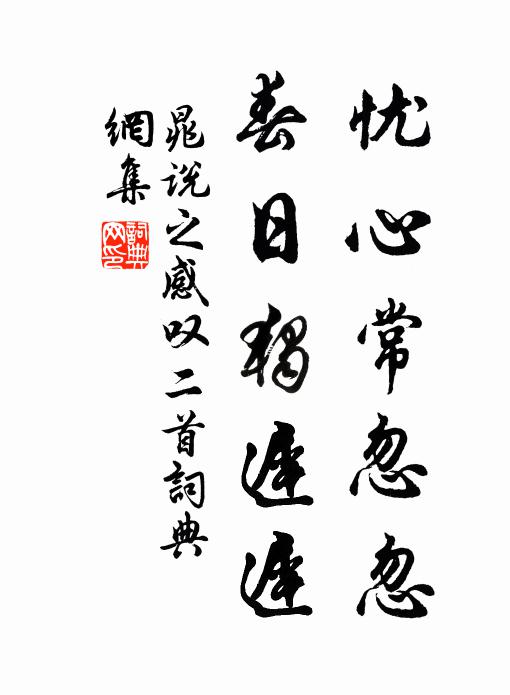 忧心常忽忽
春日獨遲遲
晁说之感叹二首詞典
網集
詞典网印